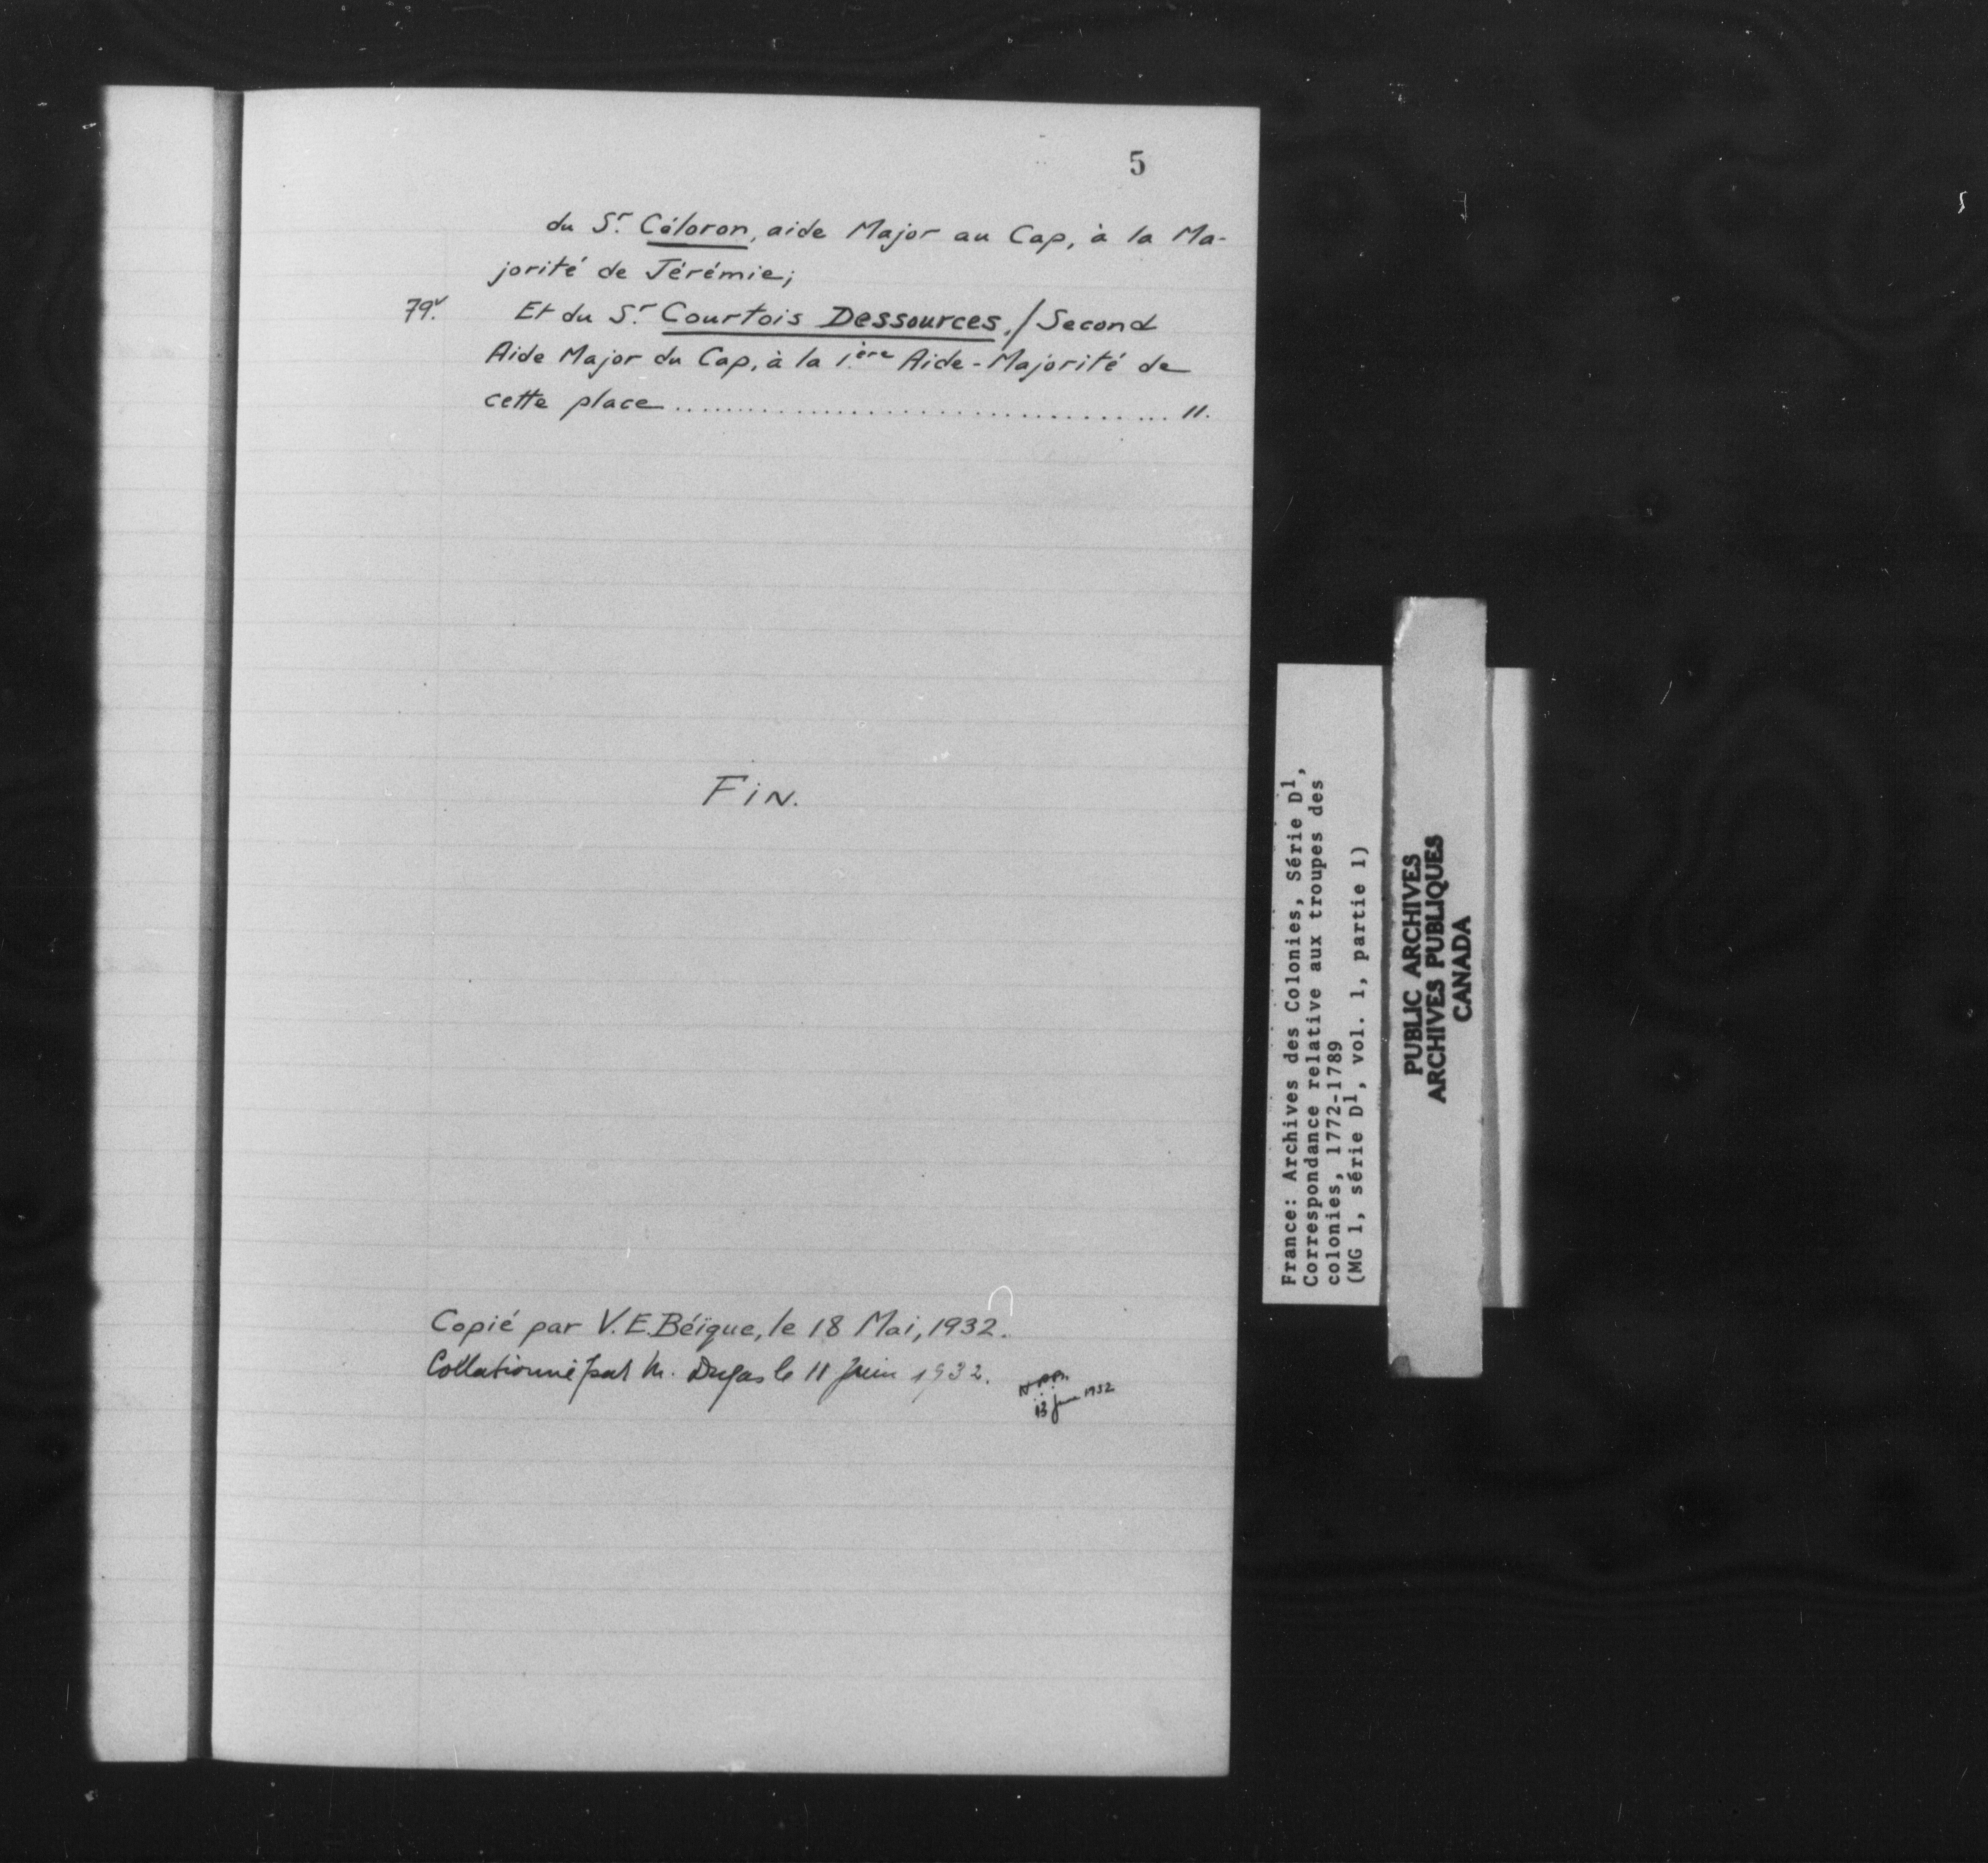 5
du Sr. Céloron, aide Major au Cap, à la Ma-
jorité de Jérémie;
79v. Et du Sr. Courtois Dessources,/Second
Aide Major du Cap, à la 1.ère Aide-Majorité de
cette place .................................... 11.
Fin.
Copié par V.E.Béïque, le 18 Mai, 1932.
Collationné par M. Dugas le 11 Juin 1932.
13 June 1932
France: Archives des Colonies, Série D1,
Correspondance relative aux troupes des
colonies, 1772-1789
(MG 1, série D1, vol. 1, partie 1)
PUBLIC ARCHIVES
ARCHIVES PUBLIQUES
CANADA